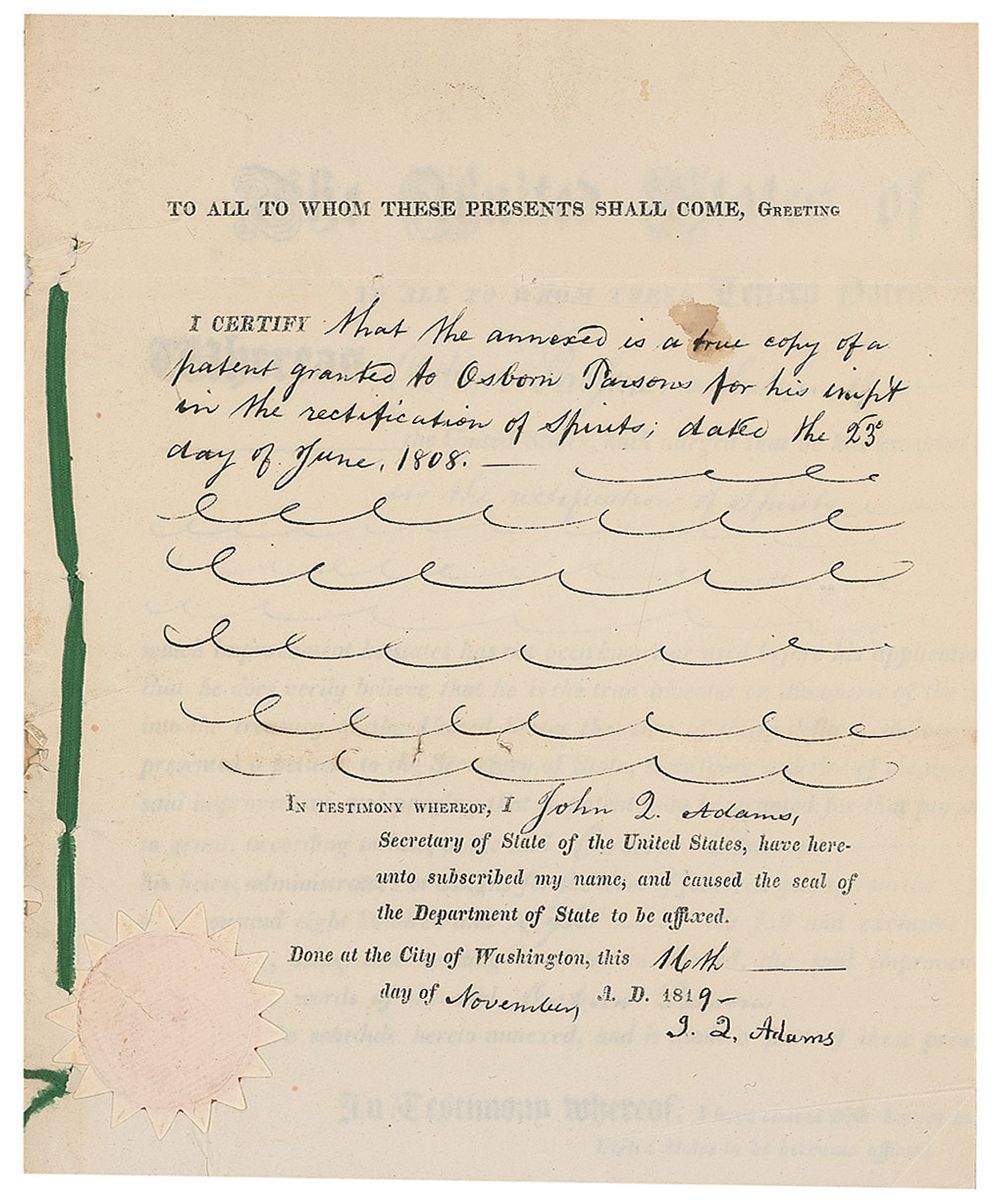 TO ALL TO WHOM THESE PRESENTS SHALL COME, GREETING
I CERTIFY that the annexed is a true copy of a
patent granted to Osborn Parsons for his imp't
in the rectification of spirits; dated the 23d
day of June, 1808.
IN TESTIMONY WHEREOF, I John Q. Adams,
Secretary of State of the United States, have here-
unto subscribed my name, and caused the seal of
the Department of State to be affixed.
Done at the City of Washington, this 16th
day of November, A. D. 1819-
J. Q. Adams